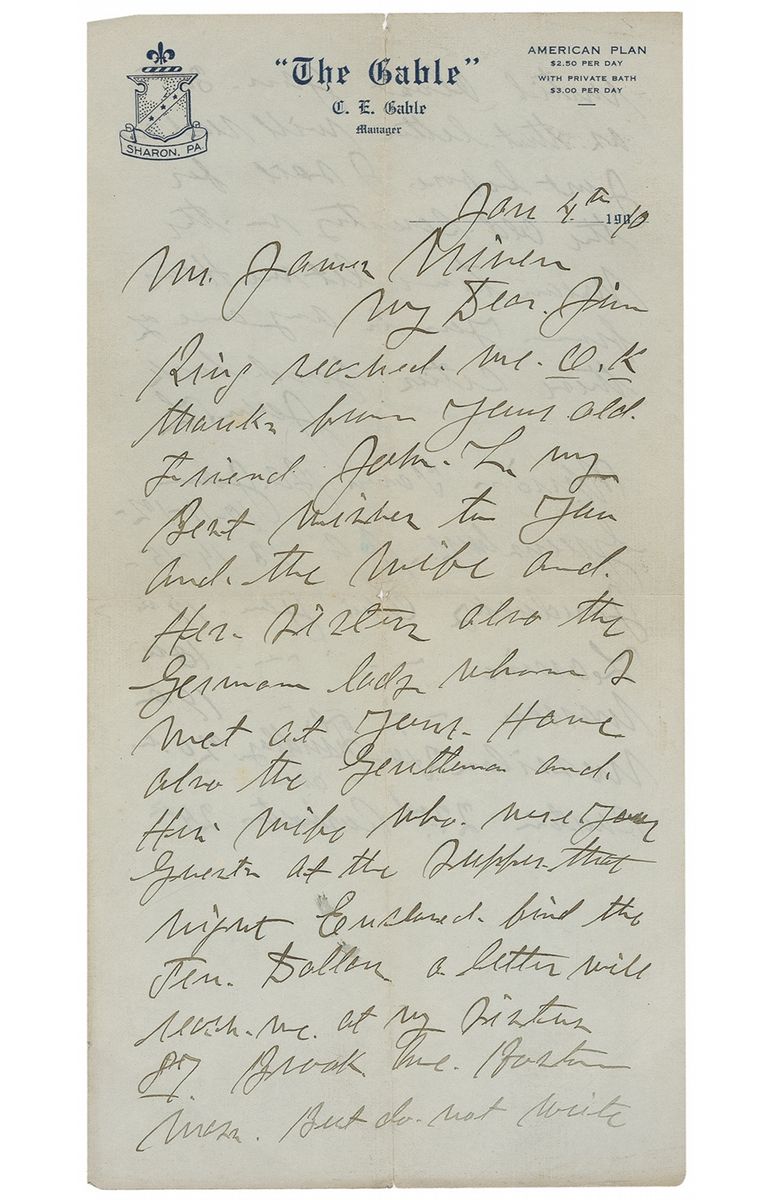 "The Gable"
C. E. Gable
Manager
AMERICAN PLAN
$2.50 PER DAY
WITH PRIVATE BATH
$3.00 PER DAY
SHARON, PA.
Jan 4th 1910
Mr. James
My Dear. Jim
Ring reached. me. O.K
thanks from Your old.
Friend John. L. my
Best wishes to You
and. the wife and.
Her. Sister also the
German lady whom I
met at Your. Home
also the Gentleman and.
His wife who. were Your
Guests at the Supper. that
night Enclosed. find the
Ten. Dollars a letter will
reach. me. at my Sisters
87 Brook. Ave. Boston
Mass. But do. not write